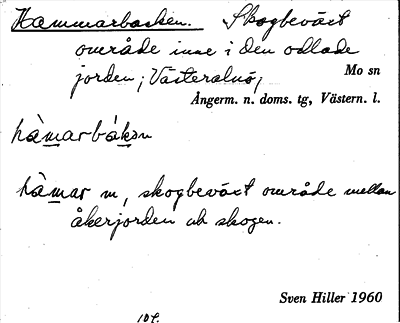 Hammarbacken. Skogbeväxt
område inne i den odlade
jorden; Västeralnö,
Mo sn
Ångerm. n. doms. tg, Västern. l.
hàmarbákɔn
hàmar m, skogbeväxt område mellan
åkerjorden och skogen.
Sven Hiller 1960